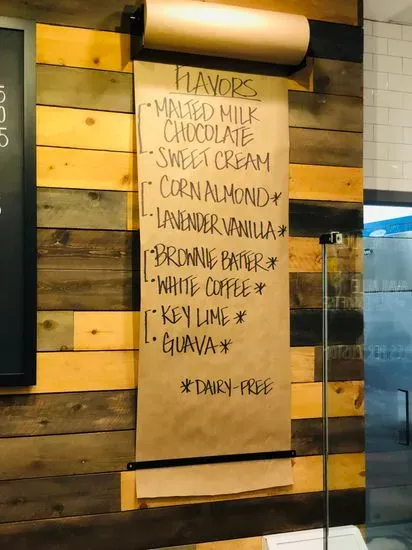 FLAVORS
• MALTED MILK
CHOCOLATE
• SWEET CREAM
• CORN ALMOND *
• LAVENDER VANILLA *
• BROWNIE BATTER *
• WHITE COFFEE *
• KEY LIME *
• GUAVA *
* DAIRY-FREE